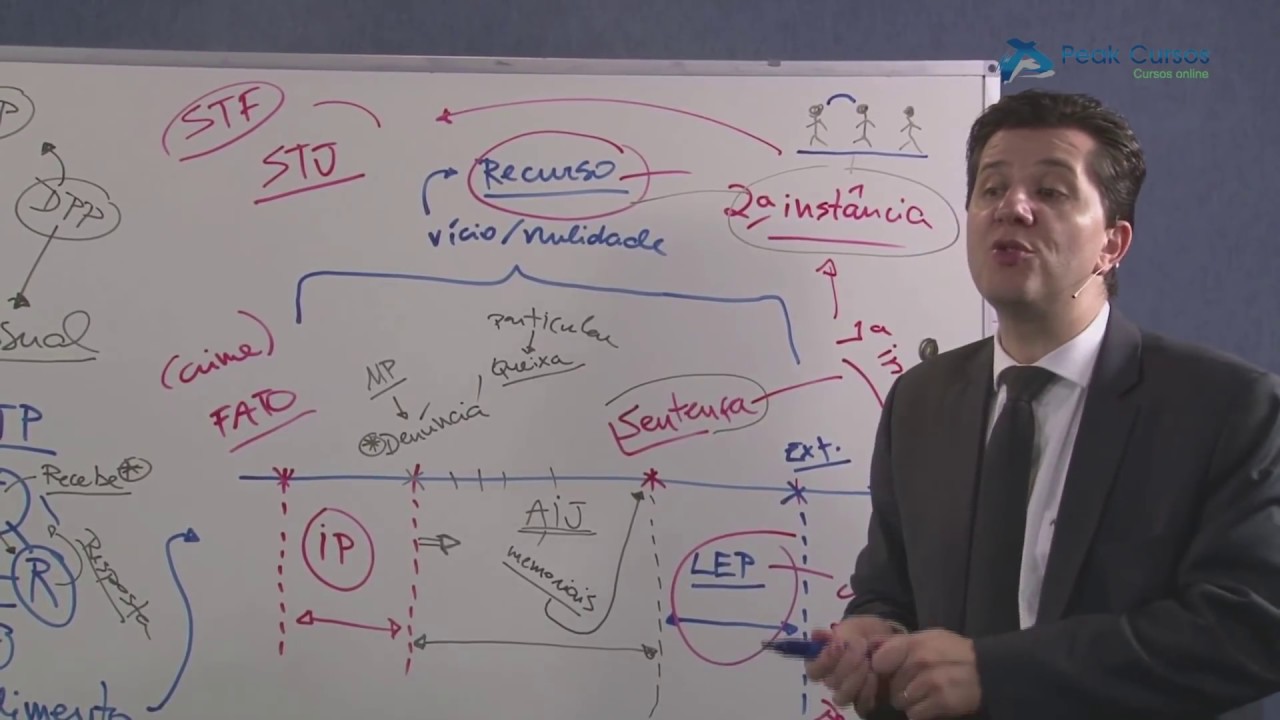 Peak Cursos
Cursos online
P
STF
STJ
Recurso
vício/nulidade
2ª instância
DPP
sual
1ª
in
(crime)
FATO
MP
Denúncia
particular
Queixa
Sentença
Ext.
TP
Recebe
R
Resposta
iP
AIJ
memoriais
LEP
dimento